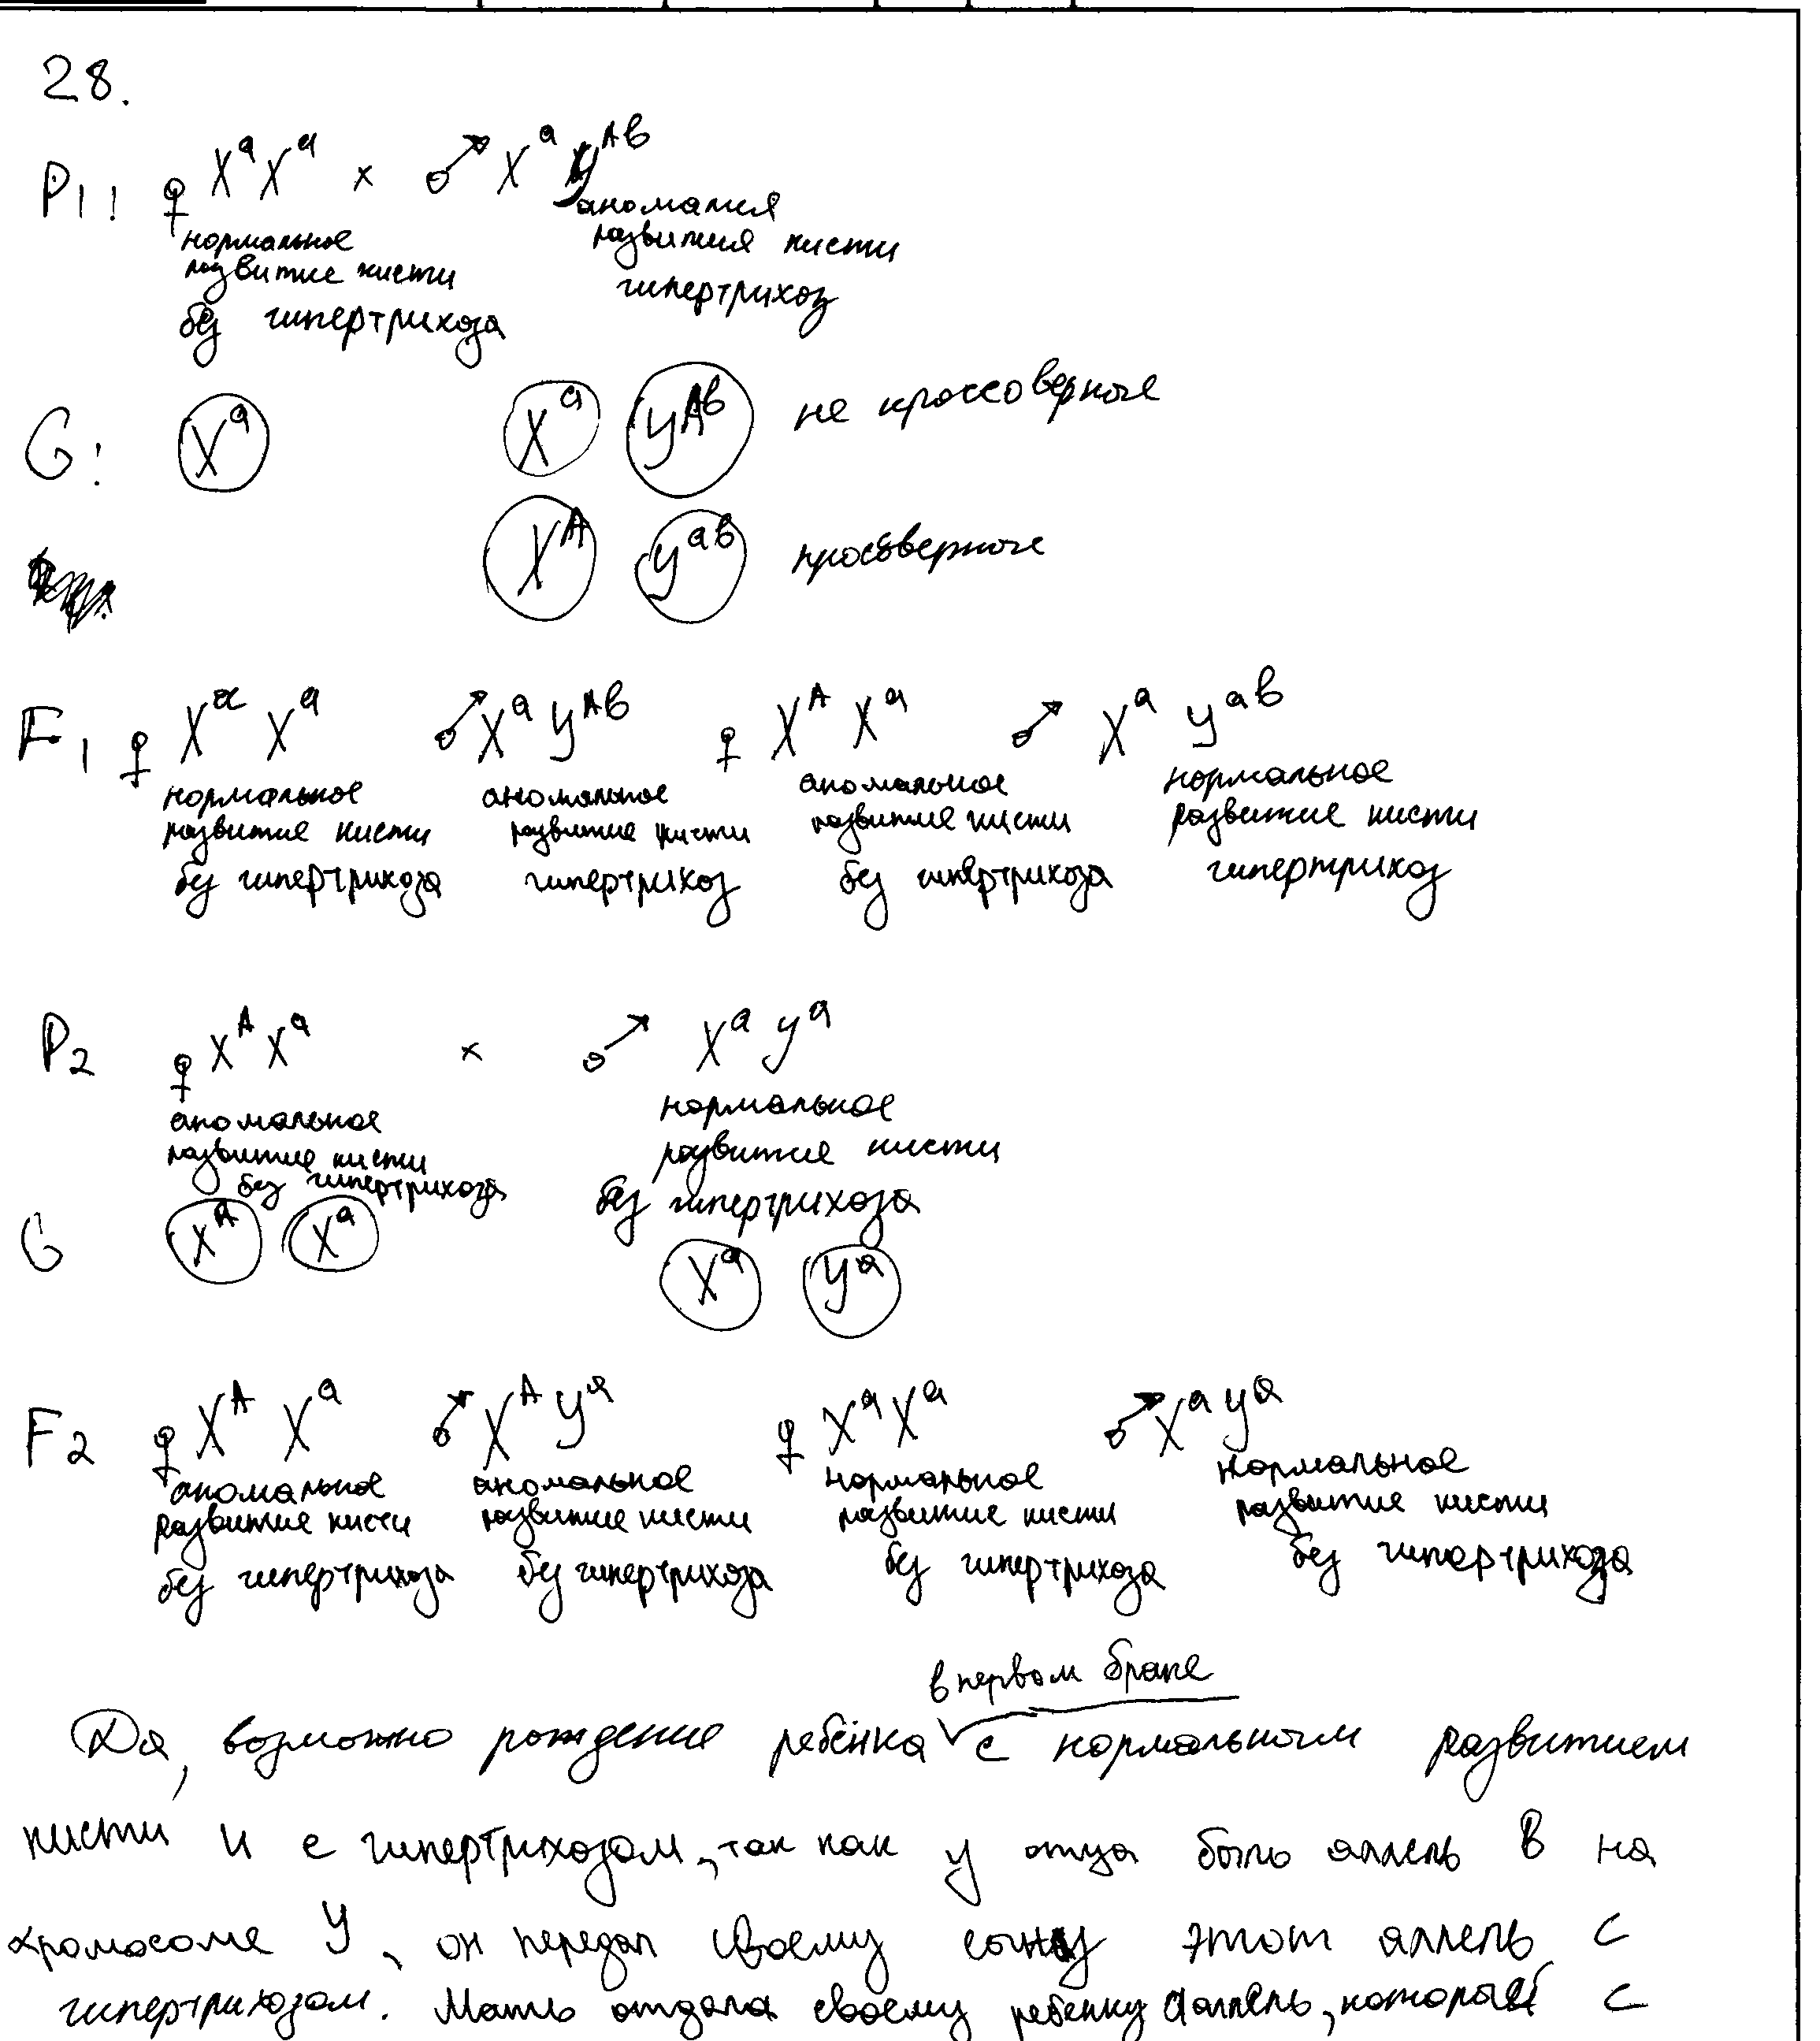 28.
P1: ♀ XᵃXᵃ × ♂ XᵃYᴬᵇ
нормальное развитие кисти без гипертрихоза
аномалия развития кисти гипертрихоз
G: Xᵃ Xᵃ Yᴬᵇ не кроссоверные
Xᴬ Yᵃᵇ кроссоверные
F1 ♀ XᵃXᵃ ♂ XᵃYᴬᵇ ♀ XᴬXᵃ ♂ XᵃYᵃᵇ
нормальное развитие кисти без гипертрихоза
аномальное развитие кисти гипертрихоз
аномальное развитие кисти без гипертрихоза
нормальное развитие кисти гипертрихоз
P2 ♀ XᴬXᵃ × ♂ XᵃYᵃ
аномальное развитие кисти без гипертрихоза
нормальное развитие кисти без гипертрихоза
G Xᴬ Xᵃ Xᵃ Yᵃ
F2 ♀ XᴬXᵃ ♂ XᴬYᵃ ♀ XᵃXᵃ ♂ XᵃYᵃ
аномальное развитие кисти без гипертрихоза
аномальное развитие кисти без гипертрихоза
нормальное развитие кисти без гипертрихоза
нормальное развитие кисти без гипертрихоза
в первом браке
Да, возможно рождение ребёнка с нормальным развитием
кисти и с гипертрихозом, так как у отца было аллель в на
хромосоме Y, он передал своему сыну этот аллель с
гипертрихозом. Мать отдала своему ребенку а аллель, который с